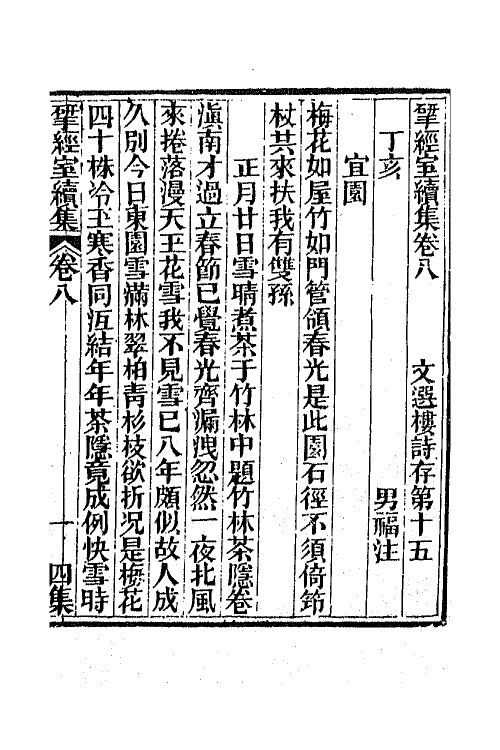 揅經室續集卷八　文選樓詩存第十五
丁亥　男福注
宜園
梅花如屋竹如門管領春光是此園石徑不須倚筇
杖其來扶我有雙孫
正月廿日雪晴煮茶于竹林中題竹林茶隱卷
滇南才過立春節已覺春光齊漏洩忽然一夜北風
來捲落漫天玉花雪我不見雪已八年頗似故人成
久別今日東園雪滿林翠柏青杉枝欲折況是梅花
四十株冷玉寒香同沍結年年茶隱竟成例快雪時
揅經室續集　卷八　一　四集